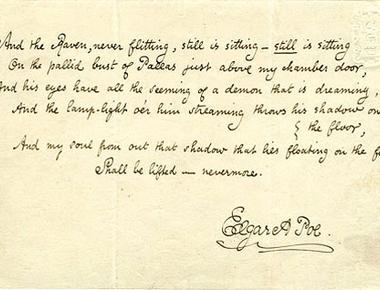 And the Raven, never flitting, still is sitting – still is sitting
On the pallid bust of Pallas just above my chamber door,
And his eyes have all the seeming of a demon that is dreaming,
And the lamp-light o'er him streaming throws his shadow on
the floor,
And my soul from out that shadow that lies floating on the
Shall be lifted – nevermore.
Edgar A Poe.